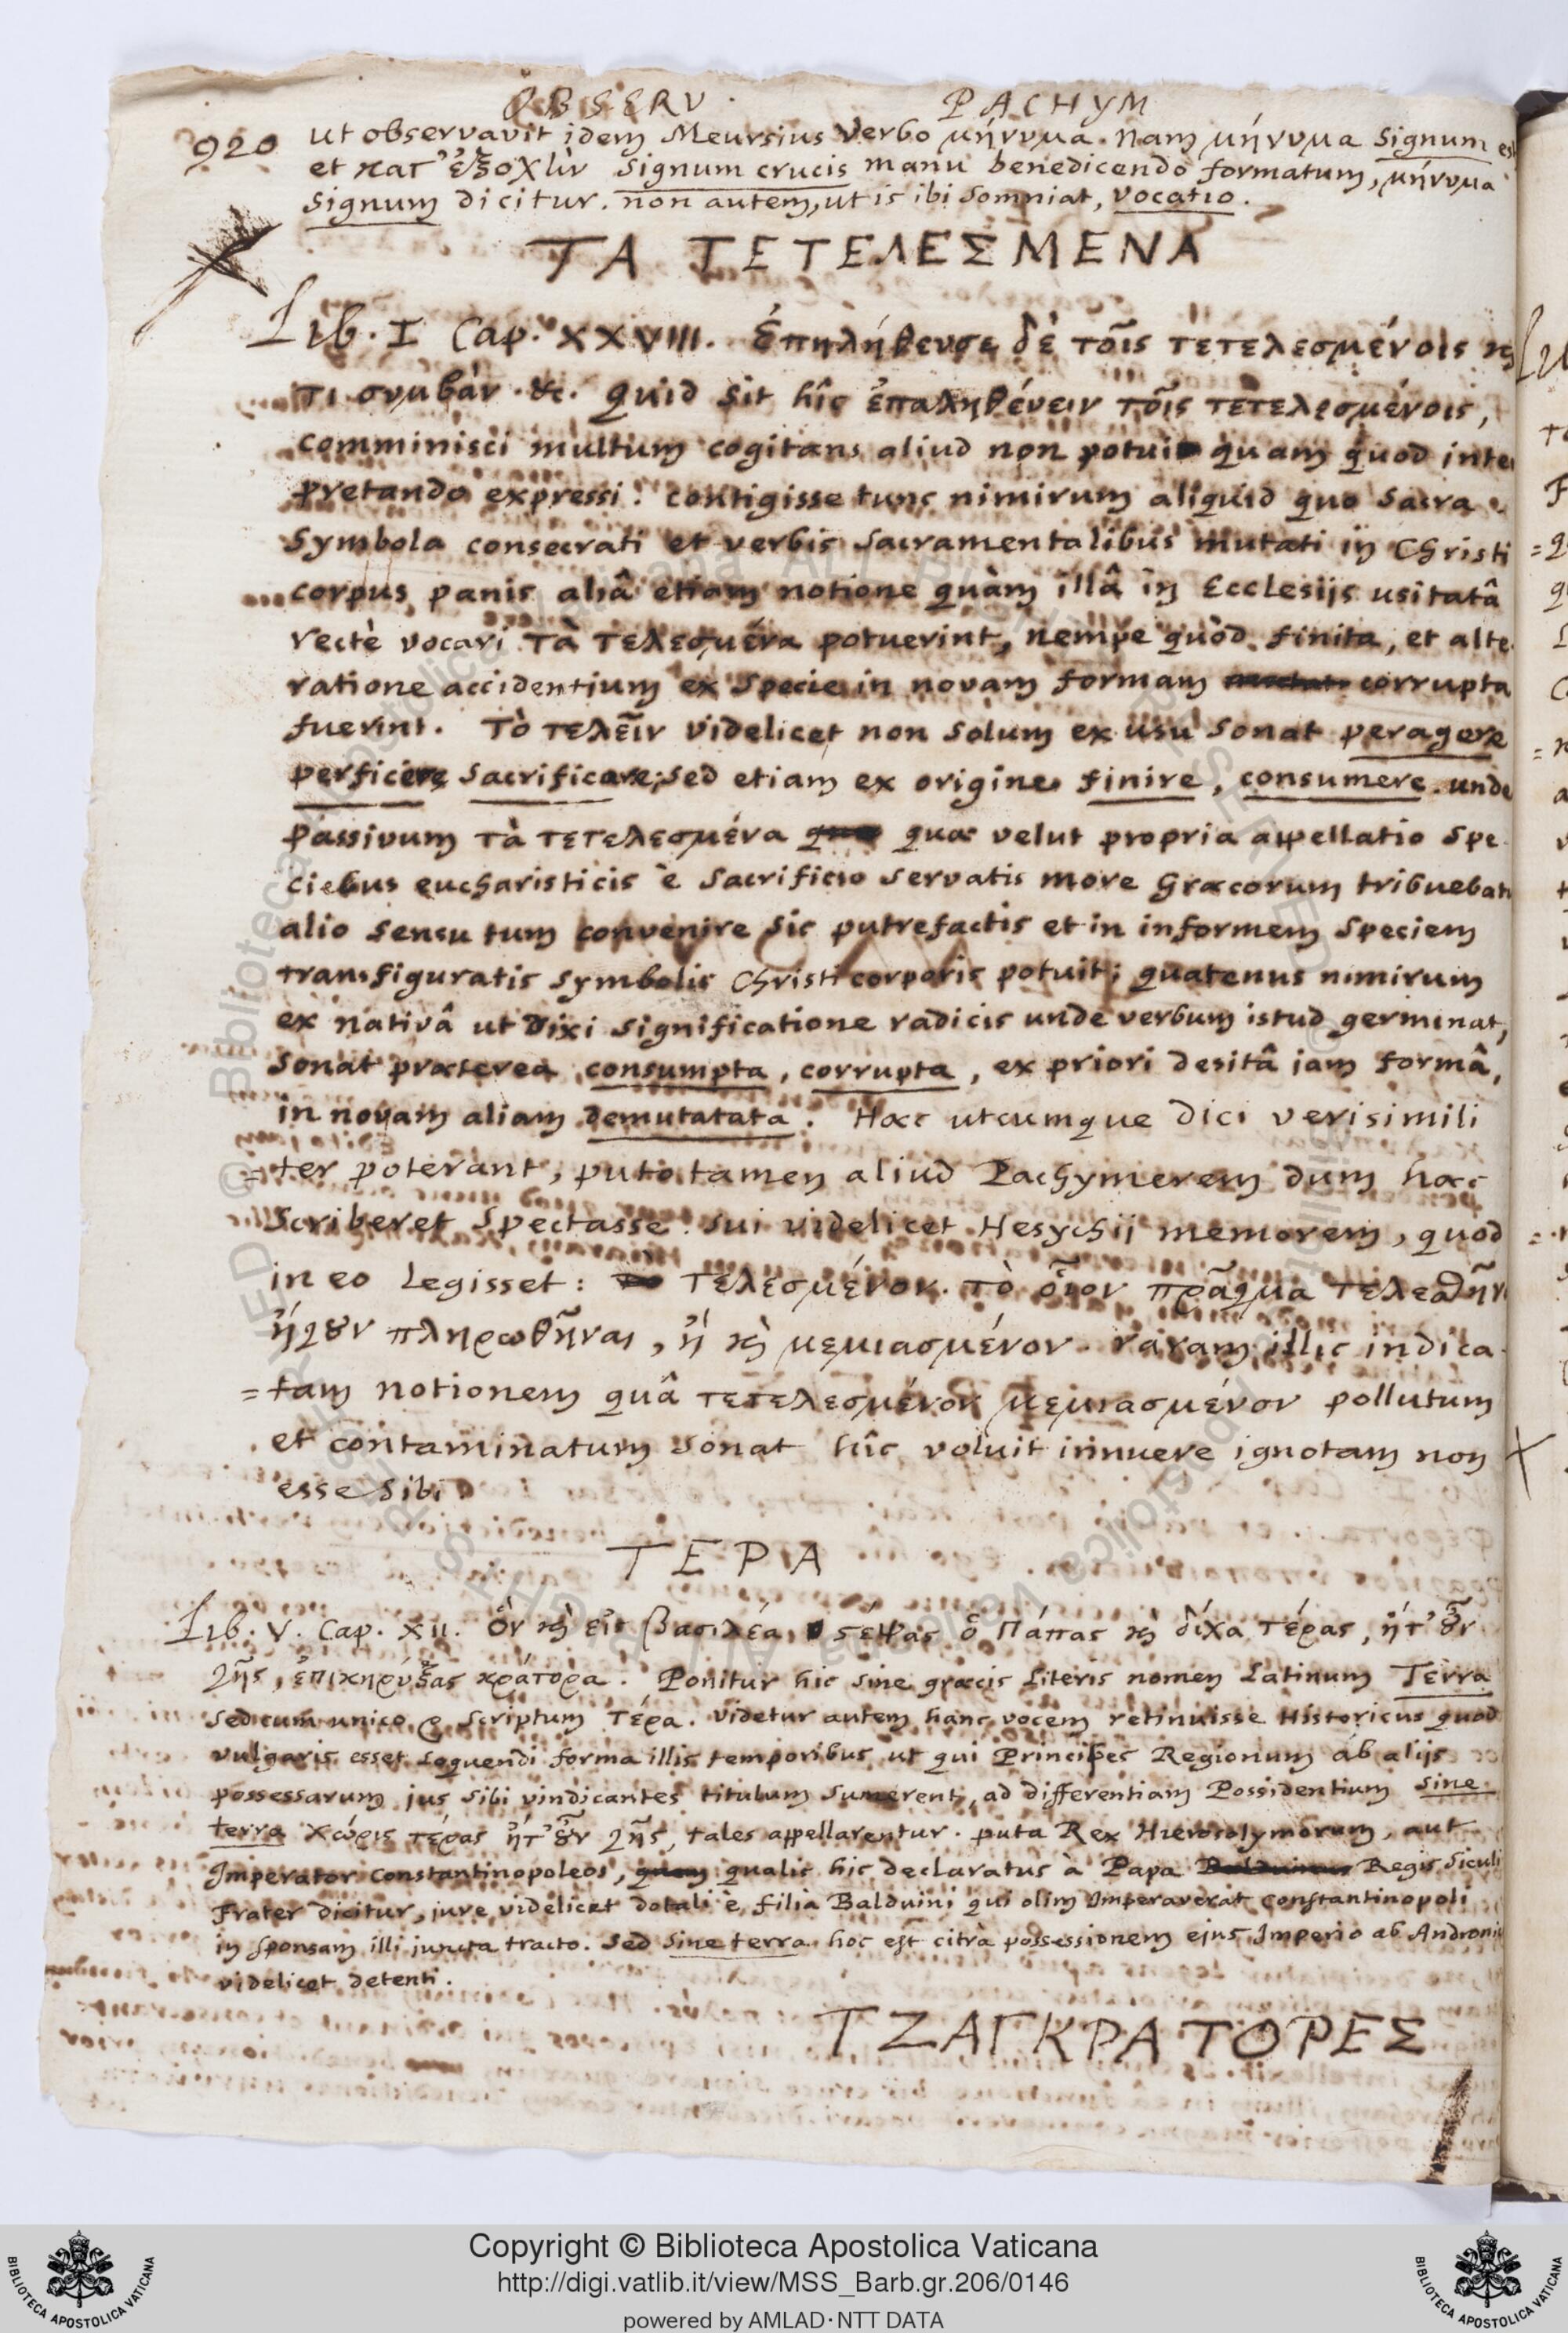 OBSERV. PACHYM
920 ut observavit idem Meursius verbo μήνυμα. nam μήνυμα Signum est
et κατ' ἐξοχὴν signum crucis manu benedicendo formatum, μήνυμα
signum dicitur. non autem, ut is ibi somniat, vocatio.
ΤΑ ΤΕΤΕΛΕΣΜΕΝΑ
Lib. I Cap. XXVIII. ἐπηλήθευσε δὲ τοῖς τετελεσμένοις καί
τι συμβάν. &c. Quid sit hîc ἐπαληθεύειν τοῖς τετελεσμένοις,
comminisci multum cogitans aliud non potui quam quod inter
pretando expressi: contigisse tunc nimirum aliquid quo sacra
Symbola consecrati et verbis sacramentalibus mutati in Christi
corpus panis aliâ etiam notione quàm illâ in Ecclesijs usitatâ
rectè vocari τὰ τελεσμένα potuerint, nempe quòd finita, et alte
ratione accidentium ex specie in novam formam corrupta
fuerint. Τὸ τελεῖν videlicet non solum ex usu sonat peragere
perficere sacrificare; sed etiam ex origine finire, consumere. unde
passivum τὰ τετελεσμένα quæ velut propria appellatio spe
ciebus eucharisticis è sacrificio servatis more Græcorum tribuebatur
alio sensu tum convenire sic putrefactis et in informem speciem
transfiguratis symbolis Christi corporis potuit; quatenus nimirum
ex nativâ ut dixi significatione radicis unde verbum istud germinat,
sonat præterea consumpta, corrupta, ex priori desitâ iam formâ,
in novam aliam demutatata. Hæc utcumque dici verisimili
=ter poterant, puto tamen aliud Pachymerem dum hæc
scriberet spectasse. sui videlicet Hesychij memorem, quòd
in eo legisset: τελεσμένον. τὸ οἷον πρᾶγμα τελεσθῆν
ἤγουν πληρωθῆναι, ἢ καὶ μεμιασμένον. raram illic indica
=tam notionem quâ τετελεσμένον μεμιασμένον pollutum
et contaminatum sonat hîc voluit innuere ignotam non
esse sibi.
ΤΕΡΑ
Lib. V. Cap. XII. ὃν καὶ εἰς βασιλέα στέψας ὁ Πάπας καὶ δίχα τέρας, ἤτ' οὖν
γῆς, ἐπικηρύξας κράτορα. Ponitur hic sine græcis literis nomen Latinum Terra
sed cum unico ρ scriptum τέρα. Videtur autem hanc vocem retinuisse Historicus quod
vulgaris esset loquendi forma illis temporibus ut qui Principes Regionum ab alijs
possessarum jus sibi vindicantes titulum sumerent, ad differentiam Possidentium sine
terra χώρις τέρας ἤτ' οὖν γῆς, tales appellarentur. puta Rex Hierosolymorum, aut
Imperator Constantinopoleos, qualis hic declaratus à Papa Regis Siculi
frater dicitur, jure videlicet dotali è filia Balduini qui olim Imperaverat Constantinopoli
in sponsam illi juncta tracto. Sed sine terra hoc est citrà possessionem ejus Imperio ab Andronico
videlicet detenti.
ΤΖΑΓΚΡΑΤΟΡΕΣ
Copyright © Biblioteca Apostolica Vaticana
http://digi.vatlib.it/view/MSS_Barb.gr.206/0146
powered by AMLAD·NTT DATA
BIBLIOTECA APOSTOLICA VATICANA
BIBLIOTECA APOSTOLICA VATICANA